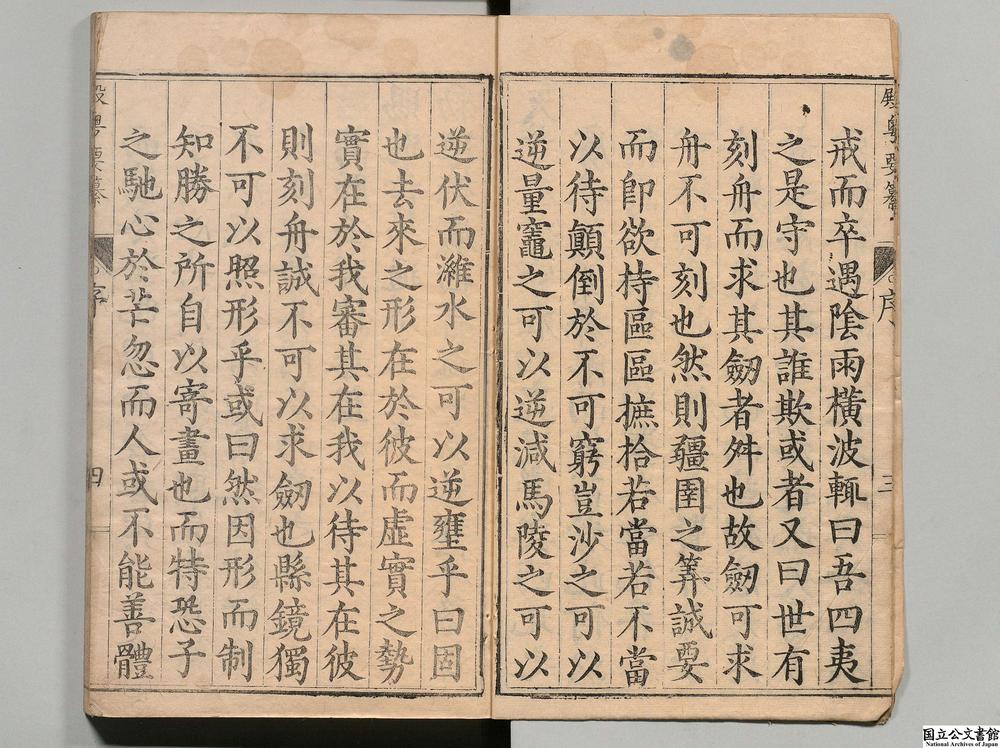 戒而卒遇陰雨橫波輒曰吾四夷
之是守也其誰欺或者又曰世有
刻舟而求其劒者舛也故劒可求
舟不可刻也然則疆圉之筭誠要
而卽欲持區區摭拾若當若不當
以待顚倒於不可窮豈沙之可以
逆量竈之可以逆減馬陵之可以
逆伏而濰水之可以逆壅乎曰固
也去來之形在於彼而虛實之勢
實在於我審其在我以待其在彼
則刻舟誠不可以求劒也縣鏡獨
不可以照形乎或曰然因形而制
知勝之所自以寄畫也而特恐子
之馳心於芒忽而人或不能善體
序
三
序
四
国立公文書館
National Archives of Japan